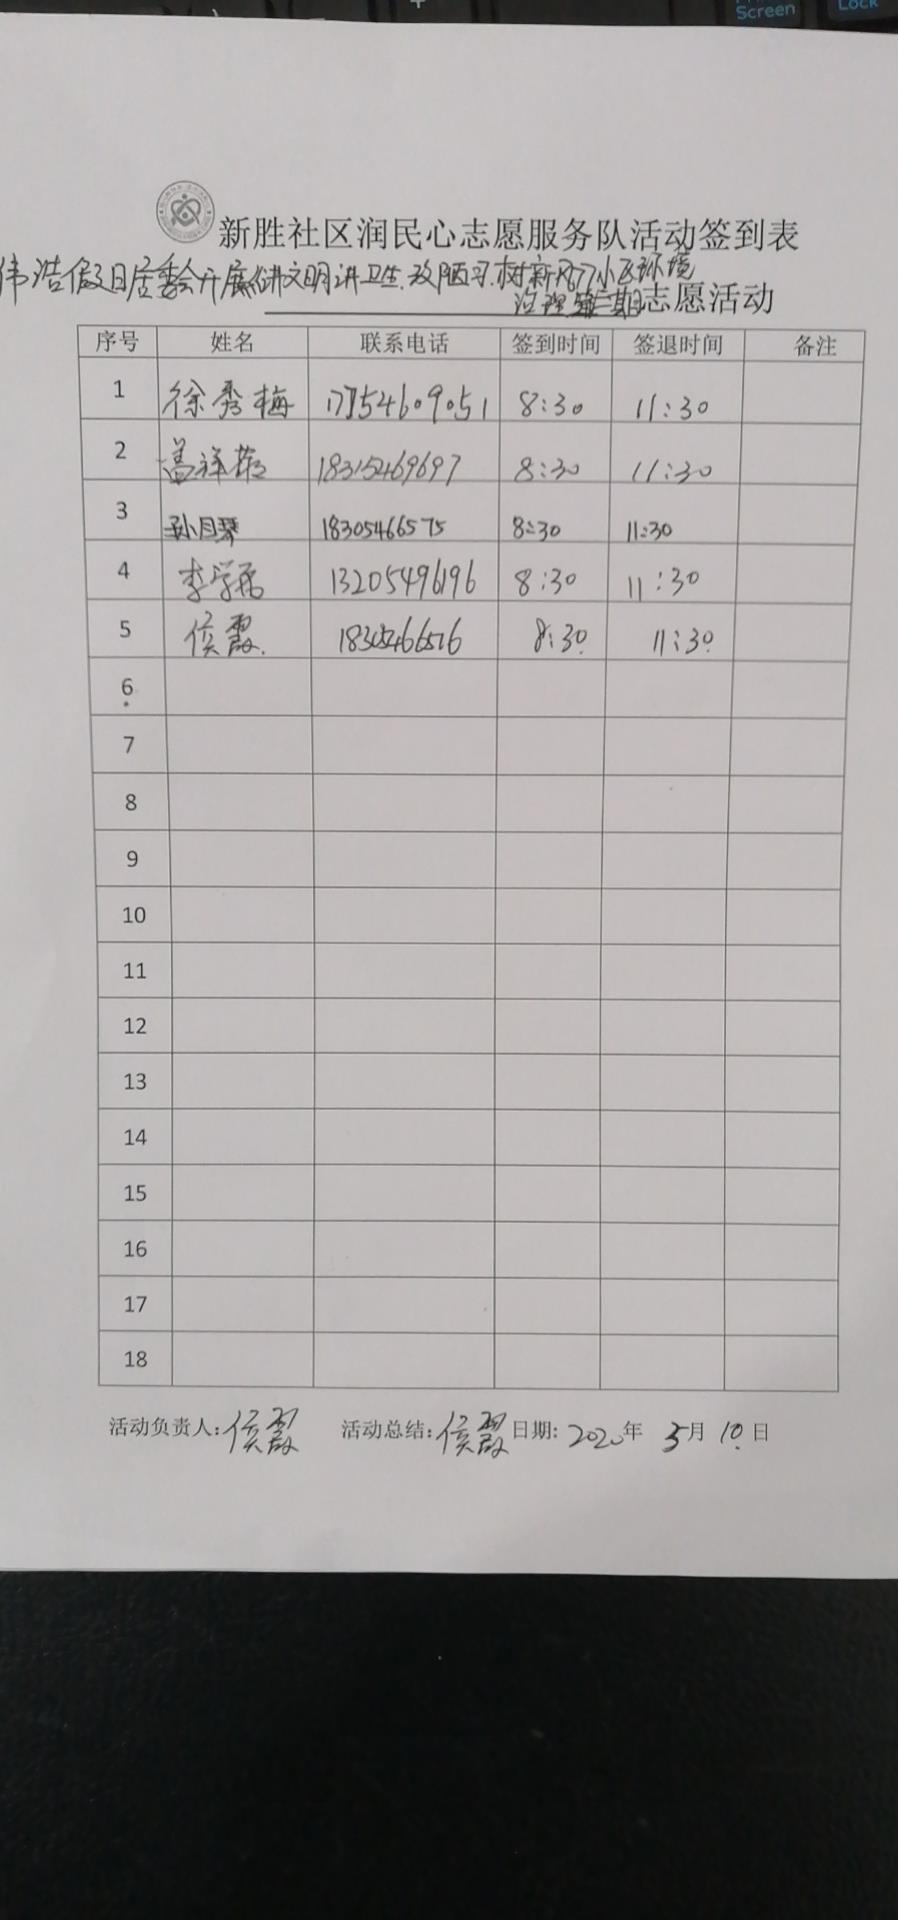 Screen
Lock
新胜社区润民心志愿服务队活动签到表
伟浩假日居委会开展“讲文明讲卫生.改陋习.树新风”小区环境
治理第三期志愿活动
序号 姓名 联系电话 签到时间 签退时间 备注
1 徐秀梅 17754609051 8:30 11:30
2 18315469697 8:30 11:30
3 孙月琴 18305466575 8:30 11:30
4 李学 13205496196 8:30 11:30
5 侯霞 8:30 11:30
6
7
8
9
10
11
12
13
14
15
16
17
18
活动负责人:侯霞 活动总结:侯霞 日期: 2020年 5月 10日